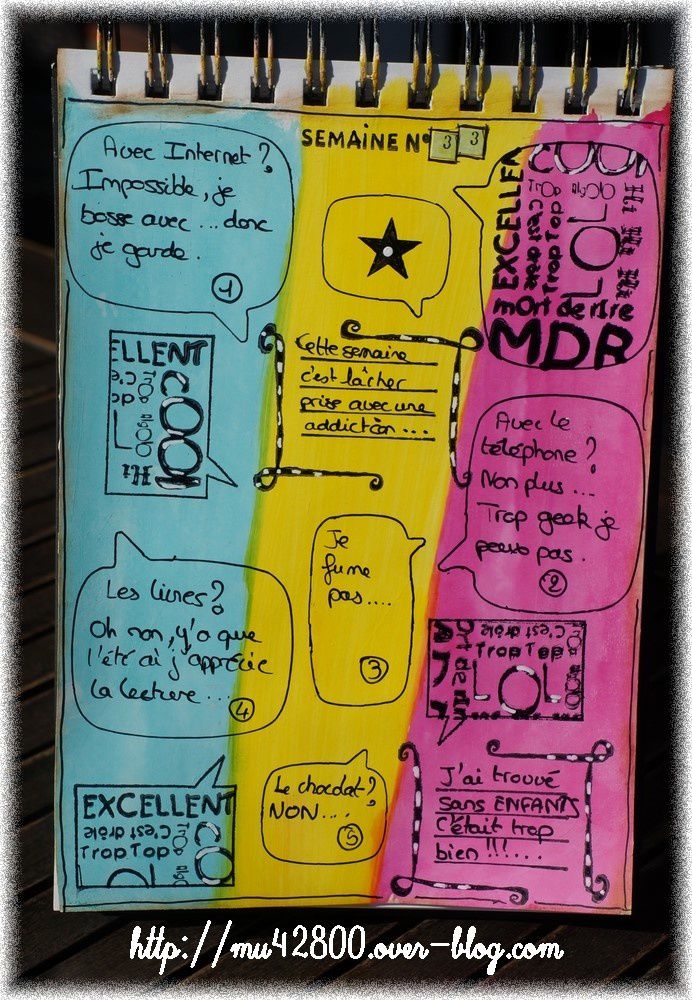 SEMAINE N° 33
Avec Internet ?
Impossible, je
bosse avec ... donc
je garde.
1
EXCELLEN
COO
Trop
algolo
C'est drôle
Trop Top
LOL
Hi Hi Hi
mort de rire
MDR
Cette semaine
c'est lâcher
prise avec une
addiction ...
ELLENT
COOl
Hi
Avec le
téléphone ?
Non plus ...
Trop geek je
peux pas.
2
Je
fume
pas....
3
Les livres ?
Oh non, y'a que
l'été où j'apprécie
la lecture ...
4
C'est drôle
Trop Top
LOL
Le chocolat ?
NON....
5
EXCELLENT
C'est drôle
Trop Top
CO
J'ai trouvé
sans ENFANTS
C'était trop
bien !!!.....
http://mu42800.over-blog.com